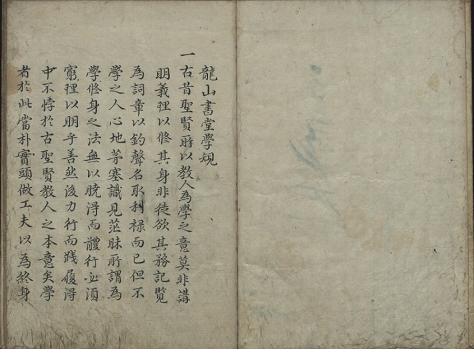 龍山書堂學規
一古昔聖賢所以敎人為學之意莫非講
明義理以修其身非徒欲其務記覽
為詞章以釣聲名取利祿而已但不
學之人心地茅塞識見茫昧所謂為
學修身之法無以曉得而體行必須
窮理以明乎善然後力行而踐履得
中不悖於古聖賢敎人之本意矣學
者於此當朴實頭做工夫以為終身